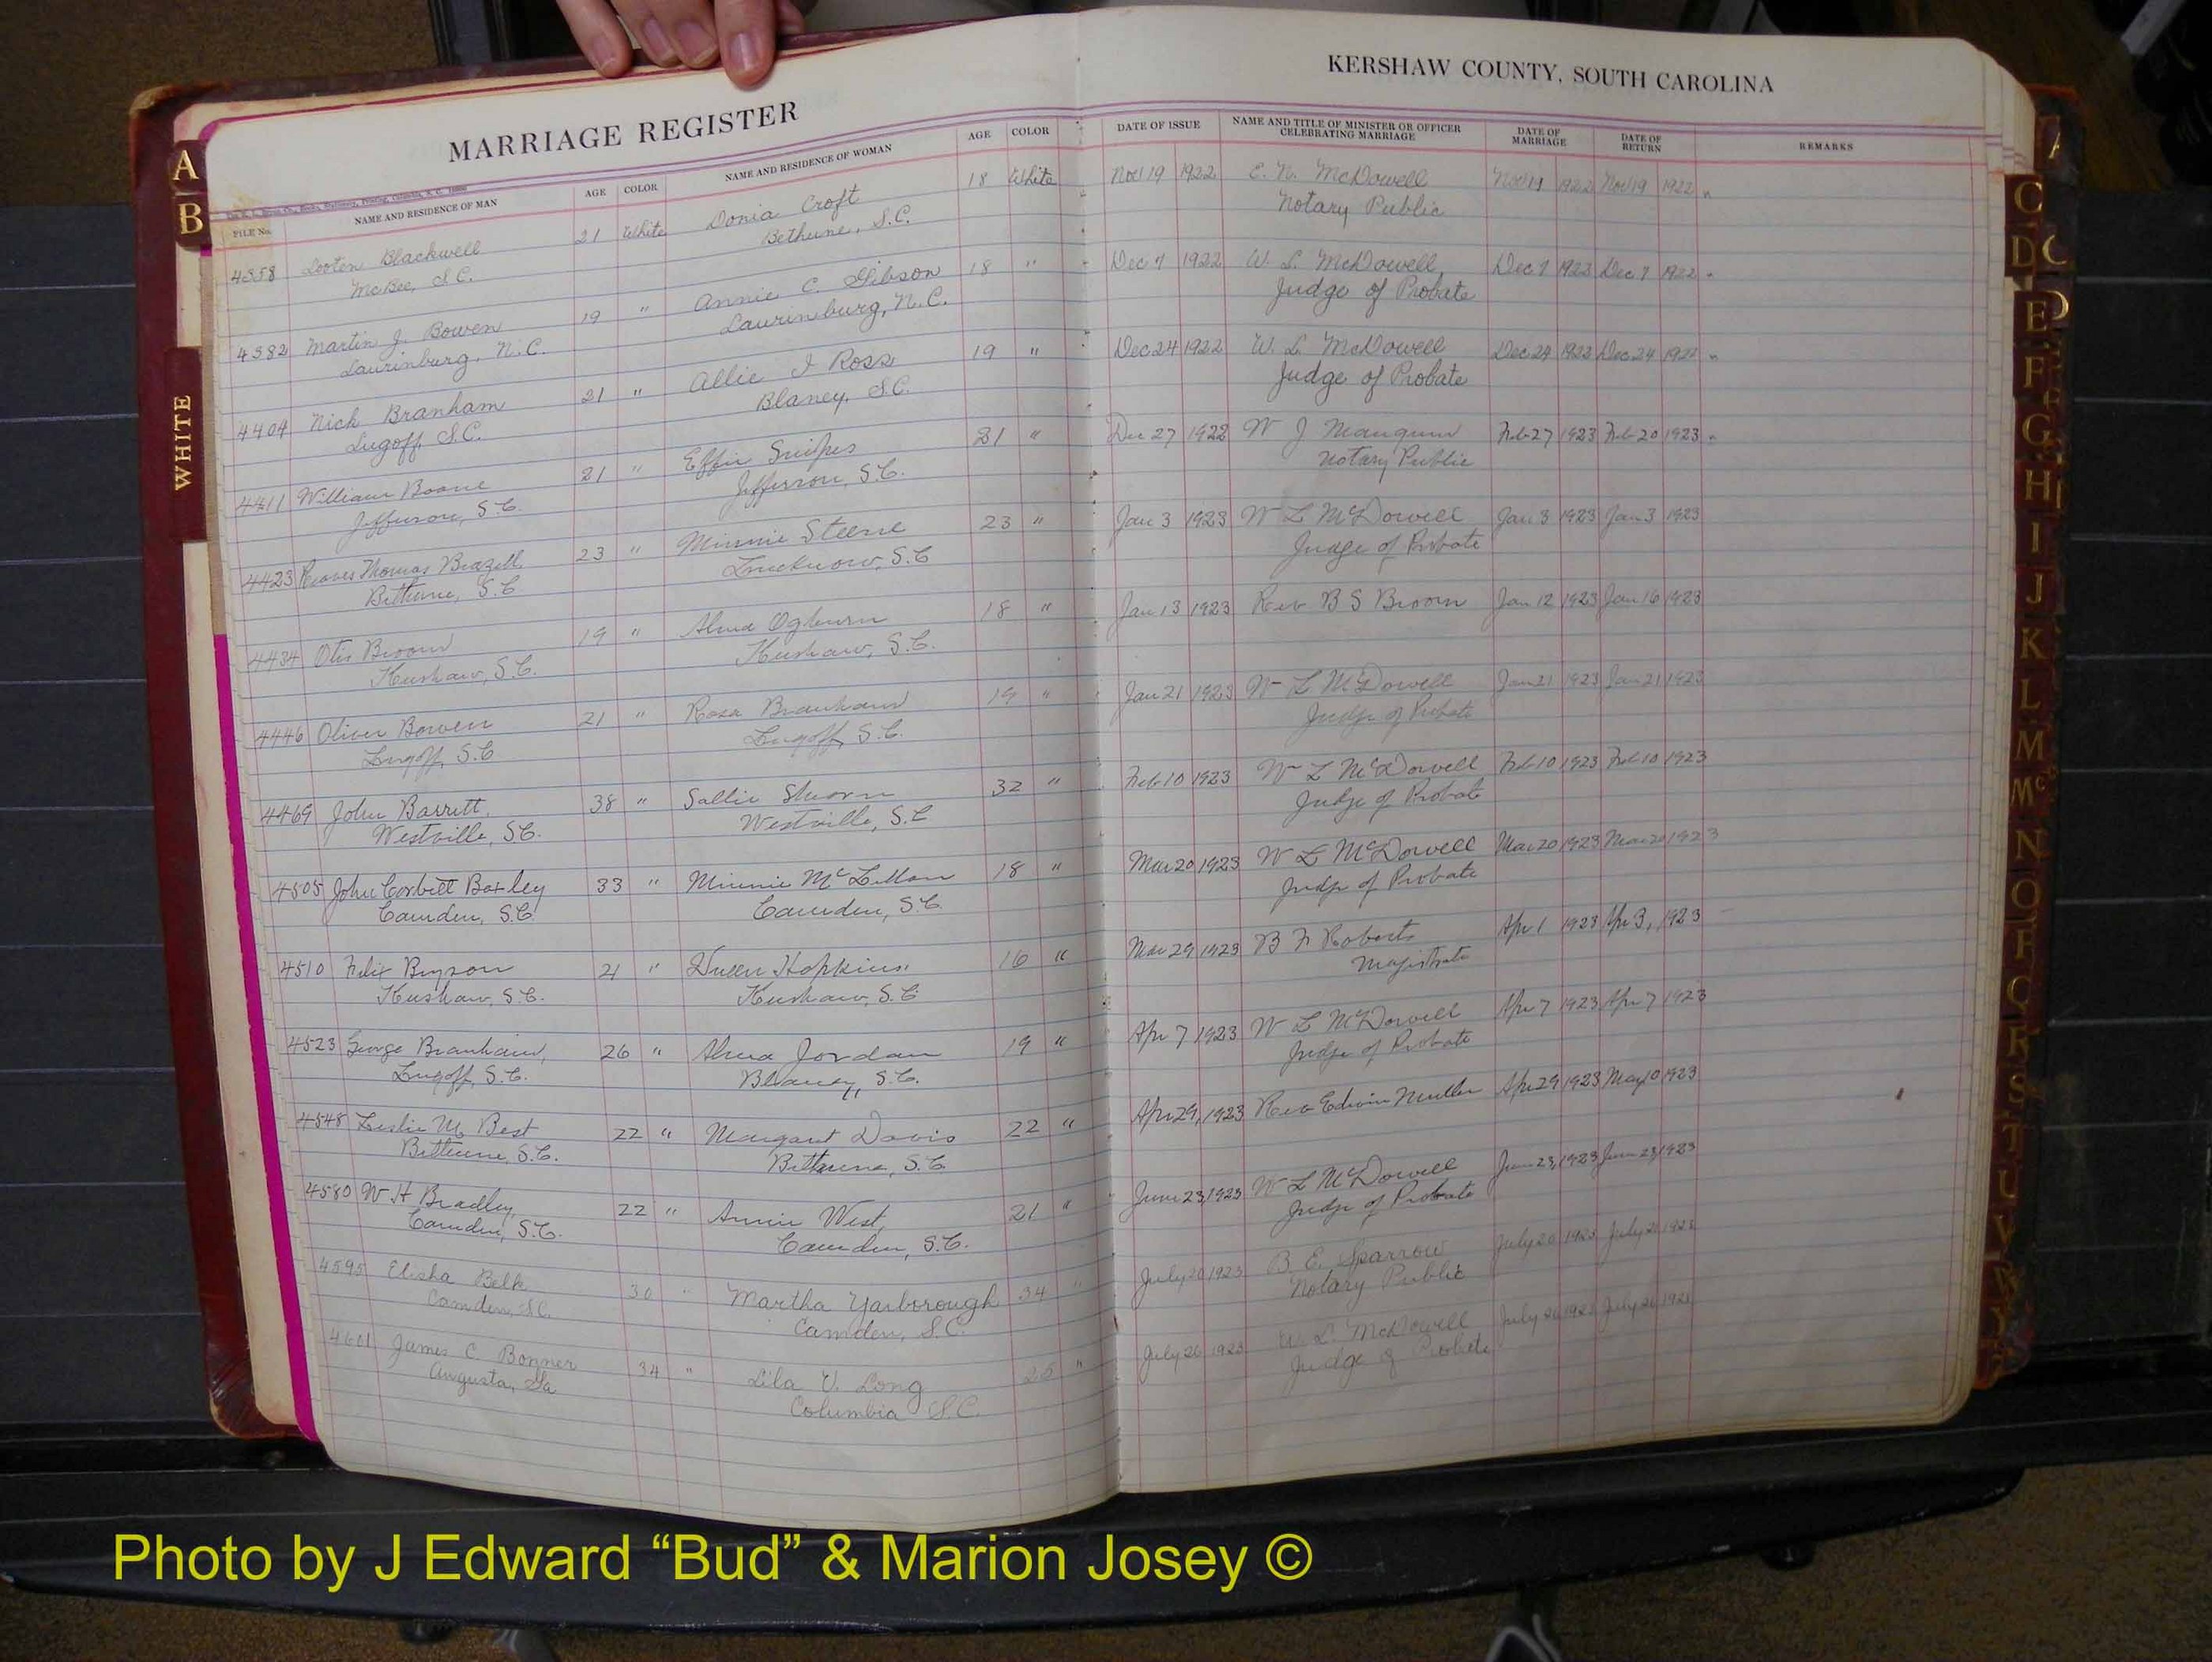 MARRIAGE REGISTER
KERSHAW COUNTY, SOUTH CAROLINA
FILE No. NAME AND RESIDENCE OF MAN AGE COLOR NAME AND RESIDENCE OF WOMAN AGE COLOR DATE OF ISSUE NAME AND TITLE OF MINISTER OR OFFICER CELEBRATING MARRIAGE DATE OF MARRIAGE DATE OF RETURN REMARKS
4358 Blackwell 21 White Donia Croft 18 White Nov 19 1922 E. N. McDowell Nov 19 1922 Nov 19 1922
McBee, S.C. Bethune, S.C. Notary Public
4382 Martin J. Bowen 19 " Annie C. Gibson 18 " Dec 7 1922 W. L. McDowell, Dec 7 1922 Dec 7 1922
Laurinburg, N.C. Laurinburg, N.C. Judge of Probate
4404 Nick Branham 21 " Allie I Ross 19 " Dec 24 1922 W. L. McDowell Dec 24 1922 Dec 24 1922
Lugoff, S.C. Blaney, S.C. Judge of Probate
4411 William Boone 21 " Effie Snipes 21 " Dec 27 1922 W J Mangum Feb 27 1923 Feb 20 1923
Jefferson, S.C. Jefferson, S.C. Notary Public
4423 Reaves Thomas Brazell 23 " Minnie Steene 23 " Jan 3 1923 W L McDowell Jan 3 1923 Jan 3 1923
Bethune, S.C. Lucknow, S.C Judge of Probate
4434 Otis Broom 19 " Alma Ogburn 18 " Jan 13 1923 Rev B S Broom Jan 12 1923 Jan 16 1923
Kershaw, S.C. Kershaw, S.C.
4446 Oliver Bowen 21 " Rosa Branham 19 " Jan 21 1923 W L McDowell Jan 21 1923 Jan 21 1923
Lugoff, S.C Lugoff, S.C. Judge of Probate
4469 John Barrett, 38 " Sallie 32 " Feb 10 1923 W L McDowell Feb 10 1923 Feb 10 1923
Westville, S.C. Westville, S.C Judge of Probate
4505 John Corbett Baxley 33 " Minnie 18 " Mar 20 1923 W L McDowell Mar 20 1923 Mar 20 1923
Camden, S.C. Camden, S.C. Judge of Probate
4510 Felix Bryson 21 " Hopkins 16 " Mar 29 1923 B F Roberts Apr 1 1923 Apr 3, 1923
Kershaw, S.C. Kershaw, S.C Magistrate
4523 George Branham, 26 " Alma Jordan 19 " Apr 7 1923 W L McDowell Apr 7 1923 Apr 7 1923
Lugoff, S.C. Blaney, S.C. Judge of Probate
4548 Leslie M. Best 22 " Margaret Davis 22 " Apr 29, 1923 Rev Edwin Muller Apr 29 1923 May 10 1923
Bethune, S.C. Bethune, S.C
4580 W H Bradley, 22 " Annie West, 21 " June 23, 1923 W L McDowell June 23, 1923 June 23, 1923
Camden, S.C. Camden, S.C. Judge of Probate
4595 Elisha Belk 30 " Martha Yarborough 34 " July 20 1923 B. E. Sparrow July 20 1923 July 20 1923
Camden, S.C. Camden, S.C. Notary Public
4601 James C. Bonner 34 " Lila V. Long " July 26 1923 W. L. McDowell July 26 1923 July 26 1923
Augusta, Ga Columbia S.C. Judge of Probate
A
B
WHITE
C
D
E
F
G
H
I
J
K
L
M
Mc
N
O
P
Q
R
S
T
U
V
W
Y
Photo by J Edward “Bud” & Marion Josey ©